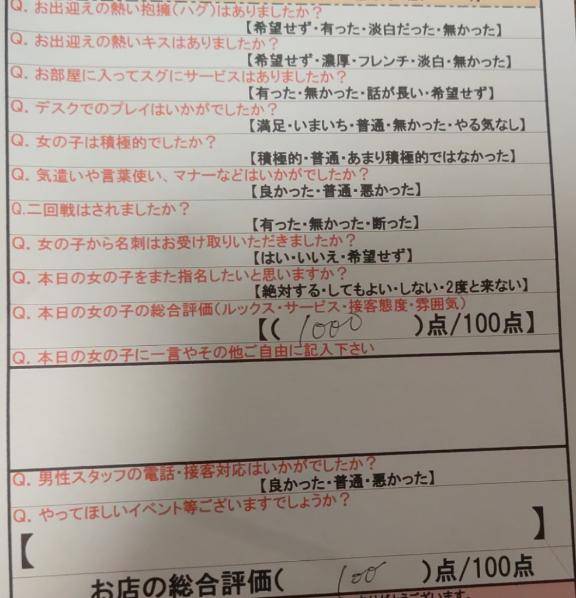 Q. お出迎えの熱い抱擁(ハグ)はありましたか?
【希望せず・有った・淡白だった・無かった】
Q. お出迎えの熱いキスはありましたか?
【希望せず・濃厚・フレンチ・淡白・無かった】
Q. お部屋に入ってスグにサービスはありましたか?
【有った・無かった・話が長い・希望せず】
Q. デスクでのプレイはいかがでしたか?
【満足・いまいち・普通・無かった・やる気なし】
Q. 女の子は積極的でしたか?
【積極的・普通・あまり積極的ではなかった】
Q. 気遣いや言葉使い、マナーなどはいかがでしたか?
【良かった・普通・悪かった】
Q.二回戦はされましたか?
【有った・無かった・断った】
Q. 女の子から名刺はお受け取りいただきましたか?
【はい・いいえ・希望せず】
Q. 本日の女の子をまた指名したいと思いますか?
【絶対する・してもよい・しない・2度と来ない】
Q. 本日の女の子の総合評価(ルックス・サービス・接客態度・雰囲気)
【( 1000 )点/100点】
Q. 本日の女の子に一言やその他ご自由に記入下さい
Q. 男性スタッフの電話・接客対応はいかがでしたか?
【良かった・普通・悪かった】
Q. やってほしいイベント等ございますでしょうか?
【 】
お店の総合評価( 100 )点/100点